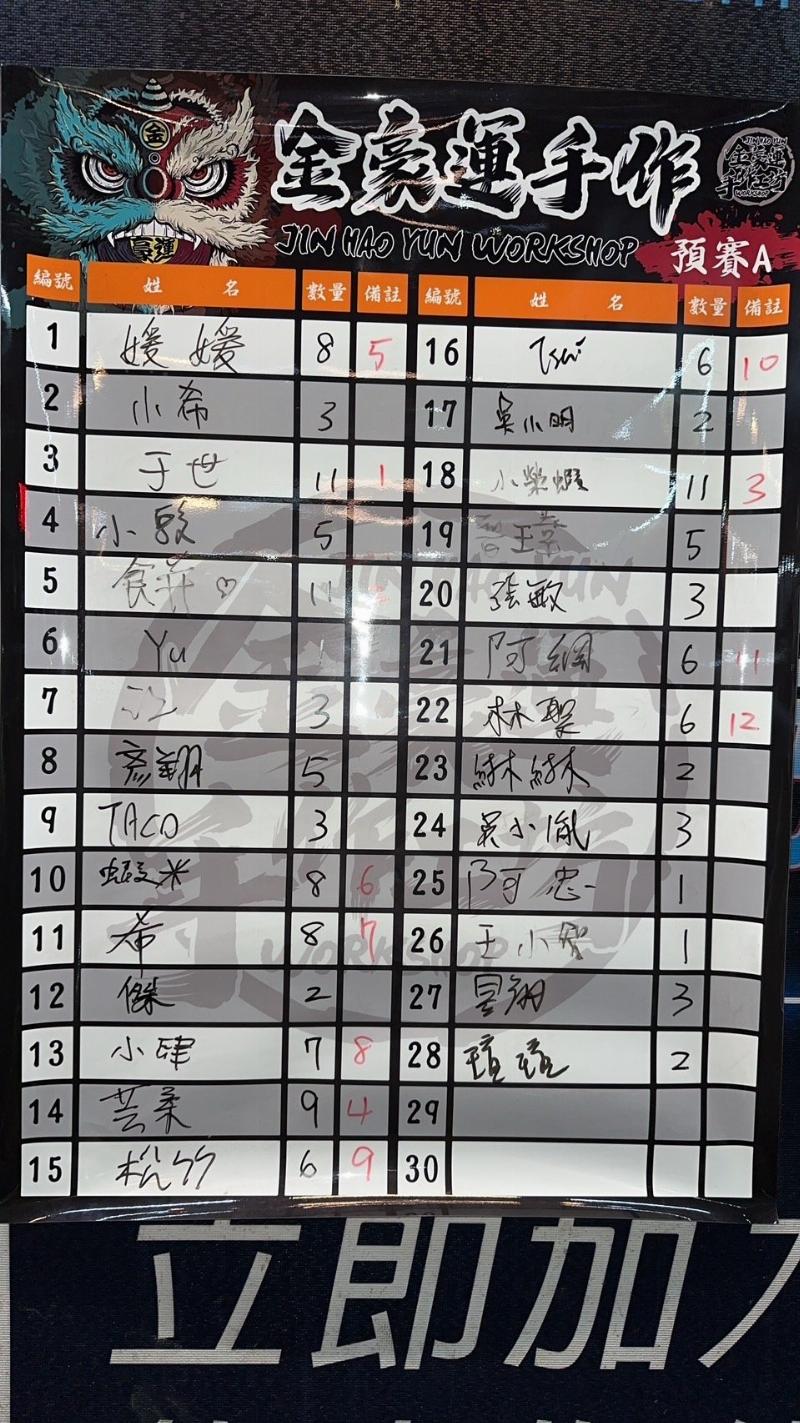 金
豪運
金豪運手作
JIN HAO YUN WORKSHOP
JIN HAO YUN
金豪運
手作工坊
WORKSHOP
預賽A
編號 姓 名 數量 備註 編號 姓 名 數量 備註
1 媛媛 8 5 16 6 10
2 小希 3 17 吳小明 2
3 于世 11 1 18 小榮蝦 11 3
4 小毅 5 19 5
5 食 ♡ 11 20 張敏 3
6 Yu 1 21 阿綱 6 11
7 江 3 22 林聖 6 12
8 彥翔 5 23 2
9 TACO 3 24 吳小胤 3
10 蝦米 8 6 25 阿忠 1
11 希 8 7 26 王小 1
12 傑 2 27 昱翔 3
13 小肆 7 8 28 瑄瑄 2
14 芸柔 9 4 29
15 松竹 6 9 30
立即加入